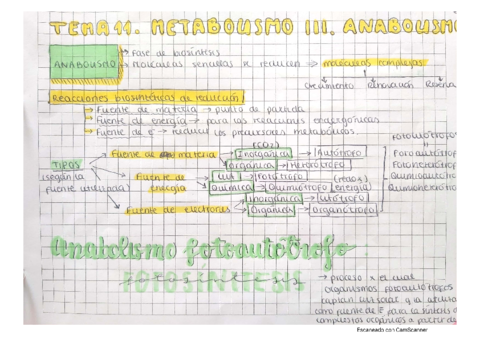 TEMA 11. METABOLISMO III. ANABOLISMO
ANABOLISMO → Fase de biosíntesis
→ Moléculas sencillas se reducen ⇒ moléculas complejas
Crecimiento Renovación Reserva
Reacciones biosintéticas de reducción
→ Fuente de materia → punto de partida
→ Fuente de energía → para las reacciones endergónicas
→ Fuente de e⁻ → reducir los precursores metabólicos.
TIPOS
(según la
fuente utilizada)
Fuente de materia
(CO2)
Inorgánica → Autótrofo
Orgánica → Heterótrofo
Fuente de
energía
Luz → Fotótrofo
Química → Quimiótrofo (redox) energía)
Fuente de electrones
Inorgánica → Litótrofo
Orgánica → Organótrofo
FOTOLITÓTROFO
=
Fotoautótrof
Fotoheterótrof
Quimioautótrof
Quimioheterótrof
Anabolismo fotoautótrofo
FOTOSÍNTESIS
fotosíntesis
→ proceso x el cual
organismos fotoautótrofos
captan luz solar y la utiliza
como fuente de E para la síntesis d
compuestos orgánicos a partir de
Escaneado con CamScanner